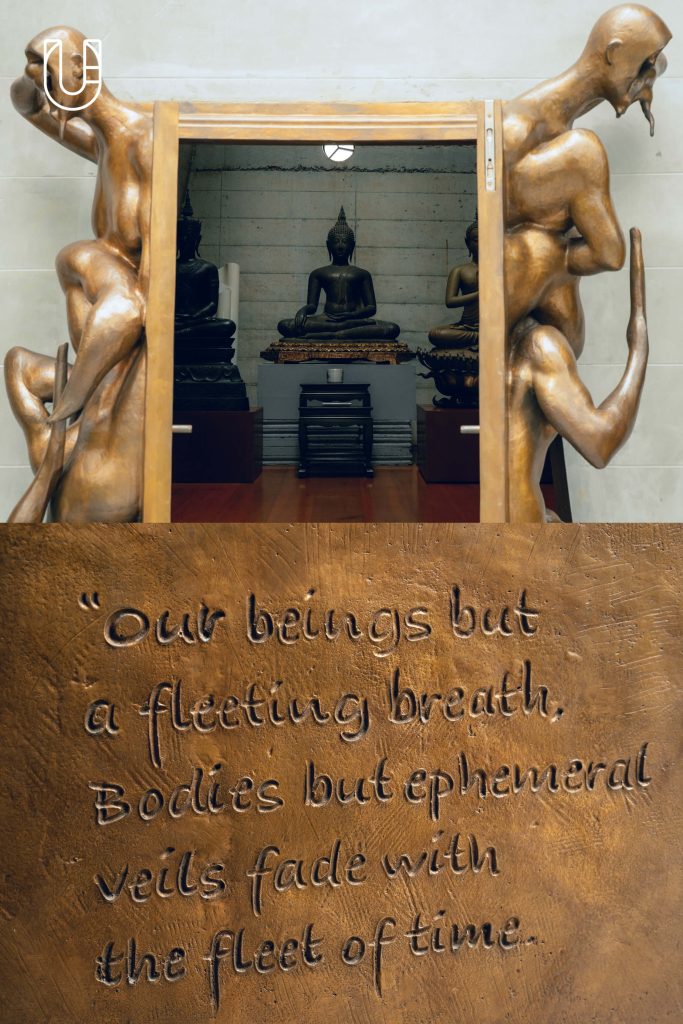 U
“Our beings but
a fleeting breath,
Bodies but ephemeral
veils fade with
the fleet of time.